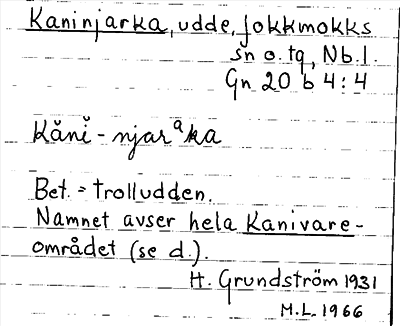 Kaninjarka, udde, Jokkmokks
sn o. tg, Nb. l.
Gn 20 b 4:4
Kănĭ̮ - njarᵃka
Bet. = trolludden.
Namnet avser hela Kanivare-
området (se d.).
H. Grundström 1931
M.L. 1966